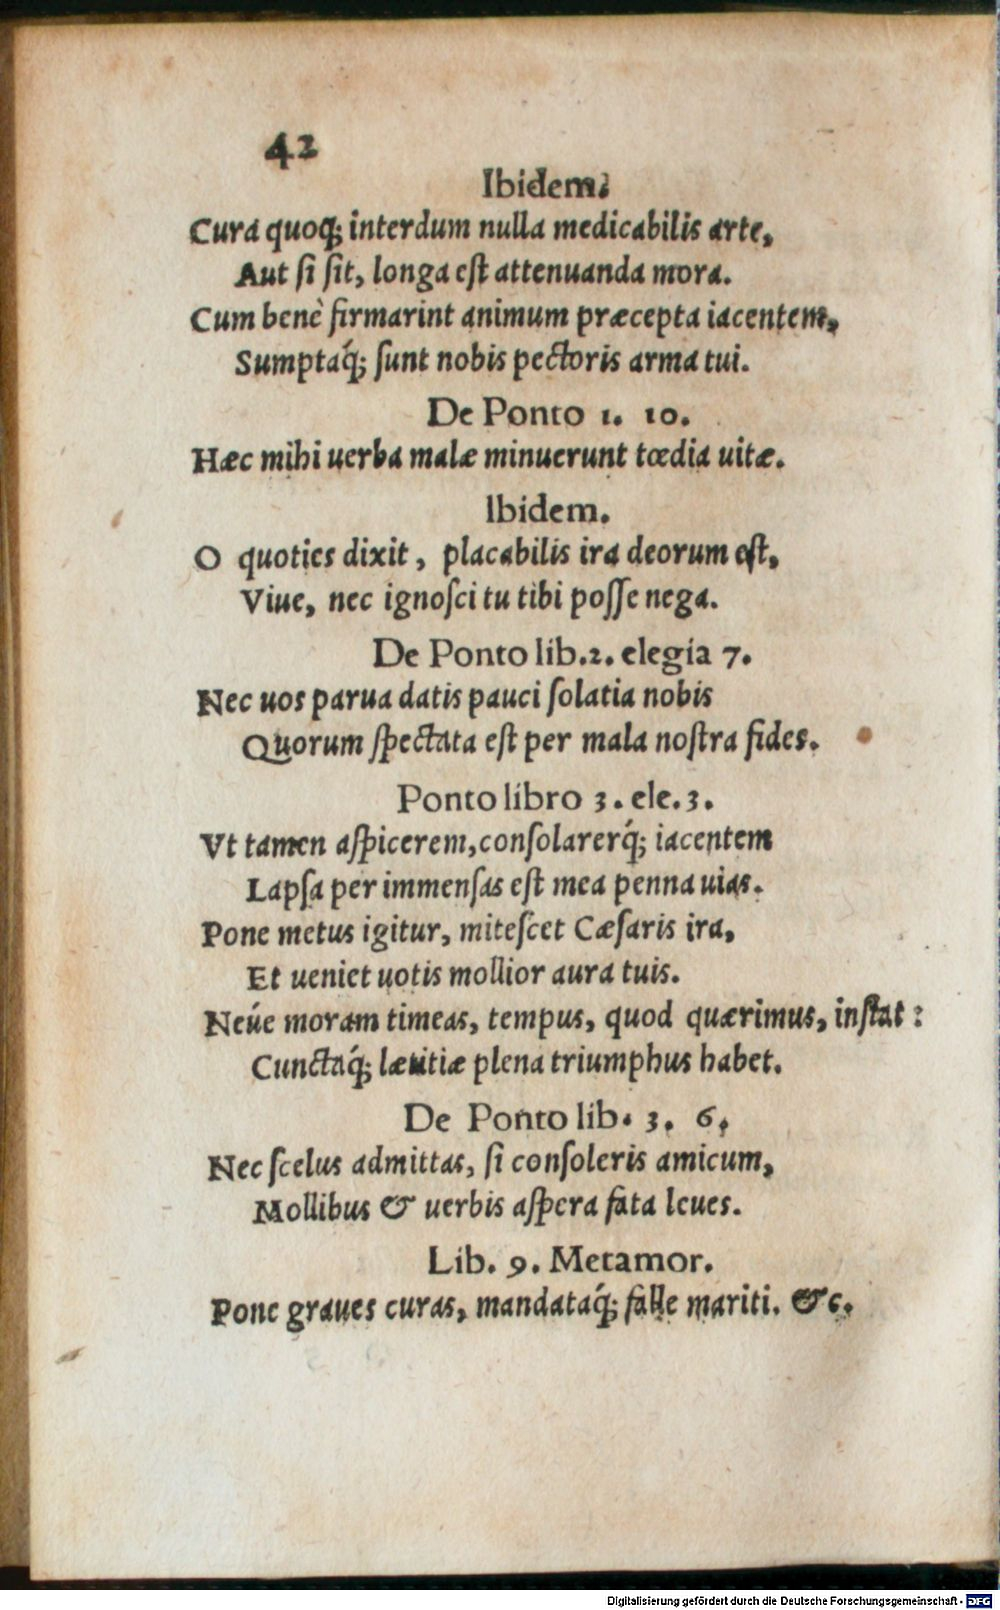 42
Ibidem.
Cura quoq; interdum nulla medicabilis arte,
Aut ſi ſit, longa eſt attenuanda mora.
Cum benè firmarint animum præcepta iacentem,
Sumptaq́; ſunt nobis pectoris arma tui.
De Ponto 1. 10.
Hæc mihi uerba malæ minuerunt tœdia uitæ.
Ibidem.
O quoties dixit, placabilis ira deorum eſt,
Viue, nec ignoſci tu tibi poſſe nega.
De Ponto lib.2. elegia 7.
Nec uos parua datis pauci ſolatia nobis
Quorum ſpectata eſt per mala noſtra fides.
Ponto libro 3. ele.3.
Vt tamen aſpicerem,conſolarerq́; iacentem
Lapſa per immenſas eſt mea penna uias.
Pone metus igitur, miteſcet Cæſaris ira,
Et ueniet uotis mollior aura tuis.
Neúe moram timeas, tempus, quod quærimus, inſtat:
Cunctaq́; lætitiæ plena triumphus habet.
De Ponto lib. 3. 6.
Nec ſcelus admittas, ſi conſoleris amicum,
Mollibus & uerbis aſpera fata leues.
Lib. 9. Metamor.
Pone graues curas, mandataq́; falle mariti. &c.
Digitalisierung gefördert durch die Deutsche Forschungsgemeinschaft - DFG